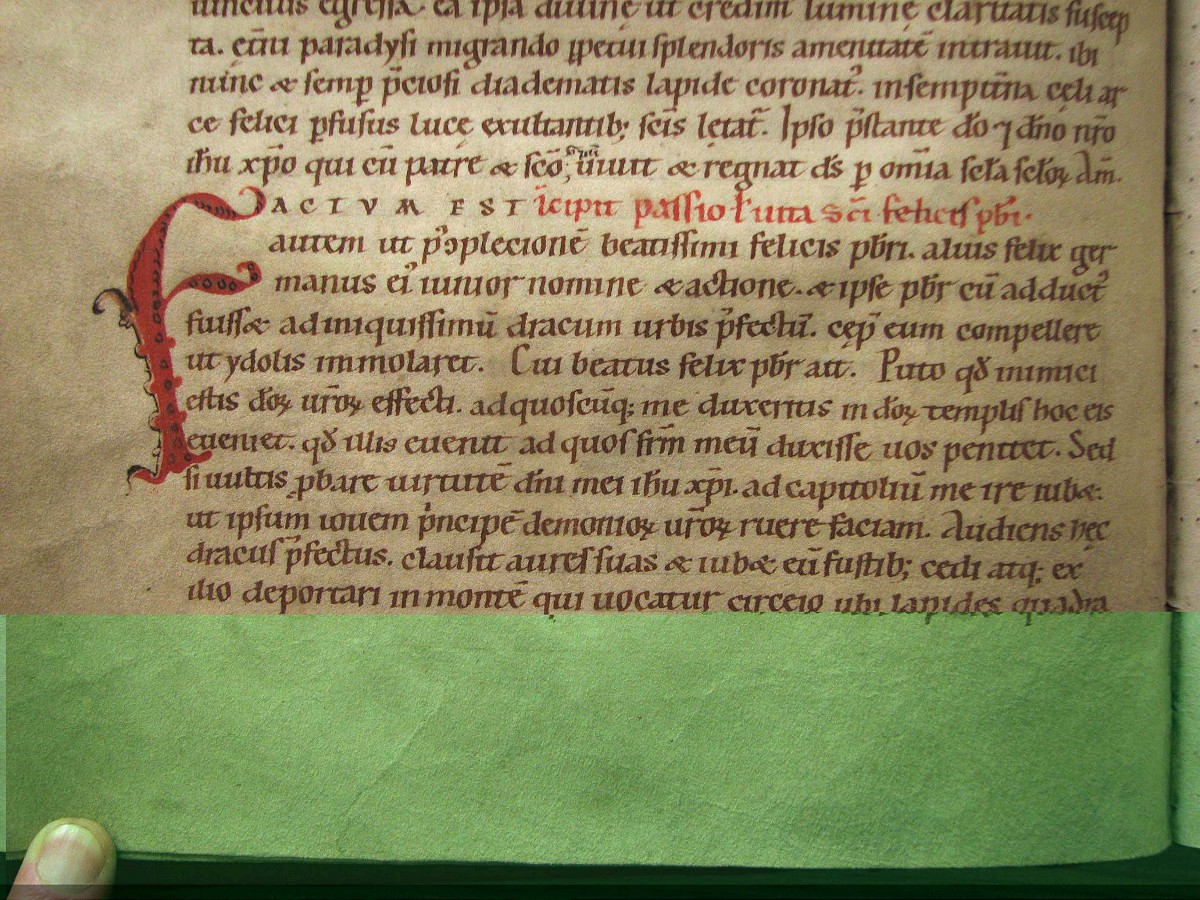 egressa. ea ipsa diuine ut credim lumine claritatis suscep
ta. etiu paradysi migrando ꝑpetui splendoris amenitatē intrauit. ibi
nunc & semꝑ p̄ciosi diadematis lapide coronat᷒. insempit̄na celi ar
ce felici ꝑfusus luce exultantib; sc̄is letat᷒. Ipso p̄stante dō ⁊ dn̄o nr̄o
ih̄u xp̄o qui cū patre & sc̄o sp̄u uiuit & regnat ds̄ ꝑ om̄ia sc̄la sc̄loꝝ Am̄.
FACTVM EST Īcipit passio l̄ uita Sc̄i felicis pbr̄i.
autem ut p᷒ ↄplecionē beatissimi felicis pbr̄i. alius felix ger
manus ei᷒ iunior nomine & actione. & ipse pbr̄ cū adduct᷒
fuiss& ad iniquissimū dracum urbis p̄fectū. cep̄ eum compellere
ut ydolis immolaret. Cui beatus felix pbr̄ ait. Puto qd̄ inimici
estis doꝝ ur̄oꝝ effecti. ad quoscūq; me duxeritis in doꝝ templis hoc eis
eueniet. qd̄ illis euenit ad quos fr̄m meū duxisse uos penitet. Sed
si uultis ꝓbare uirtutē dn̄i mei ih̄u xp̄i. ad capitoliū me ire iub&.
ut ipsum iouem p̄ncipē demonioꝝ ur̄oꝝ ruere faciam. Audiens hec
dracus p̄fectus. clausit aures suas & iub& eū fustib; cedi atq; ex
ilio deportari in montē qui uocatur circeio ubi lapides quadra